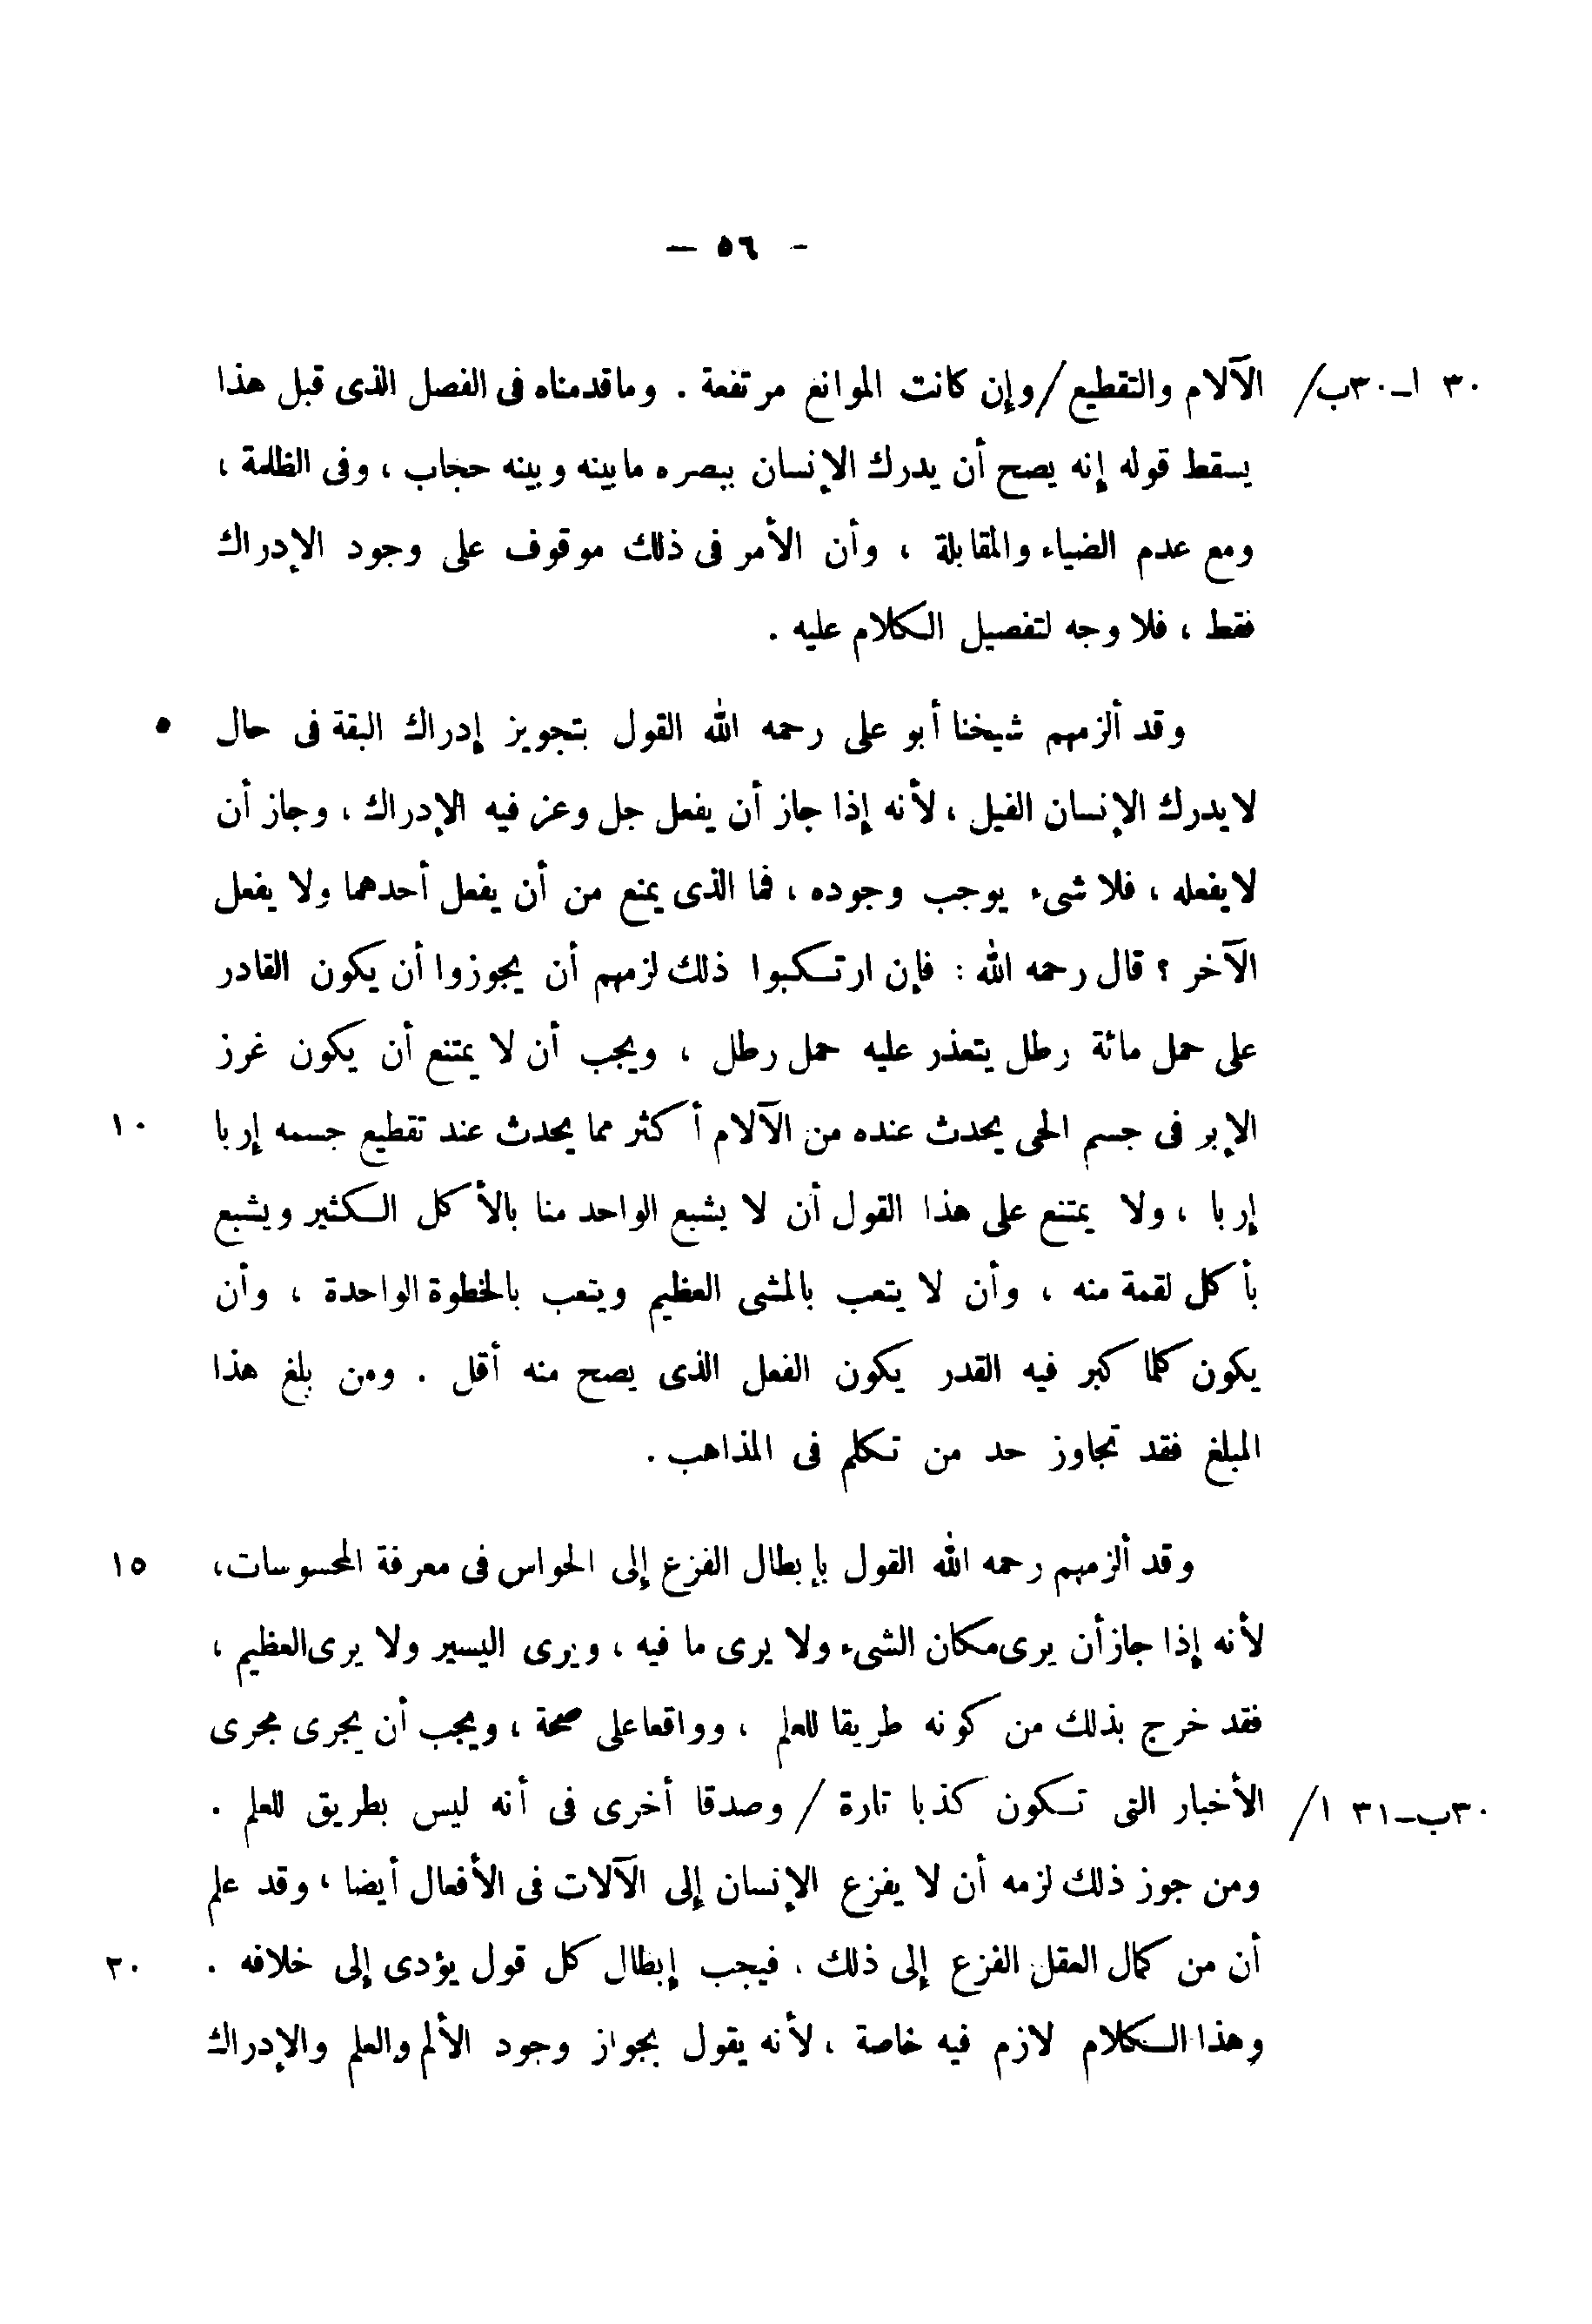 — ٥٦ -
٣٠ ا-٣٠ب/ الآلام والتقطيع / وإن كانت الموانغ مرتفعة . وماقدمناه فى الفصل الذى قبل هذا
يسقط قوله إنه يصح أن يدرك الإنسان ببصره مابينه وبينه حجاب ، وفى الظلمة ،
ومع عدم الضياء والمقابلة ، وأن الأمر فى ذلك موقوف على وجود الإدراك
فقط ، فلا وجه لتفصيل الكلام عليه .
وقد ألزمهم شيخنا أبو على رحمه الله القول بتجويز إدراك البقة فى حال ٥
لايدرك الإنسان الفيل ، لأنه إذا جاز أن يفعل جل وعز فيه الإدراك ، وجاز أن
لايفعله ، فلا شىء يوجب وجوده ، فما الذى يمنع من أن يفعل أحدهما ولا يفعل
الآخر ؟ قال رحمه الله : فإن ارتكبوا ذلك لزمهم أن يجوزوا أن يكون القادر
على حمل مائة رطل يتعذر عليه حمل رطل ، ويجب أن لا يمتنع أن يكون غرز
الإبر فى جسم الحى يحدث عنده من الآلام أكثر مما يحدث عند تقطيع جسمه إربا ١٠
إربا ، ولا يمتنع على هذا القول أن لا يشبع الواحد منا بالأكل الكثير ويشبع
بأكل لقمة منه ، وأن لا يتعب بالمشى العظيم ويتعب بالخطوة الواحدة ، وأن
يكون كلما كبر فيه القدر يكون الفعل الذى يصح منه أقل . ومن بلغ هذا
المبلغ فقد تجاوز حد من تكلم فى المذاهب .
وقد ألزمهم رحمه الله القول بإبطال الفزع إلى الحواس فى معرفة المحسوسات، ١٥
لأنه إذا جاز أن يرى مكان الشىء ولا يرى ما فيه ، ويرى اليسير ولا يرى العظيم ،
فقد خرج بذلك من كونه طريقا للعلم ، وواقعا على صحة ، ويجب أن يجرى مجرى
٣٠ب-٣١ ا/ الأخبار التى تكون كذبا تارة / وصدقا أخرى فى أنه ليس بطريق للعلم .
ومن جوز ذلك لزمه أن لا يفزع الإنسان إلى الآلات فى الأفعال أيضا ، وقد علم
أن من كمال العقل الفزع إلى ذلك ، فيجب إبطال كل قول يؤدى إلى خلافه . ٢٠
وهذا الكلام لازم فيه خاصة ، لأنه يقول بجواز وجود الألم والعلم والإدراك